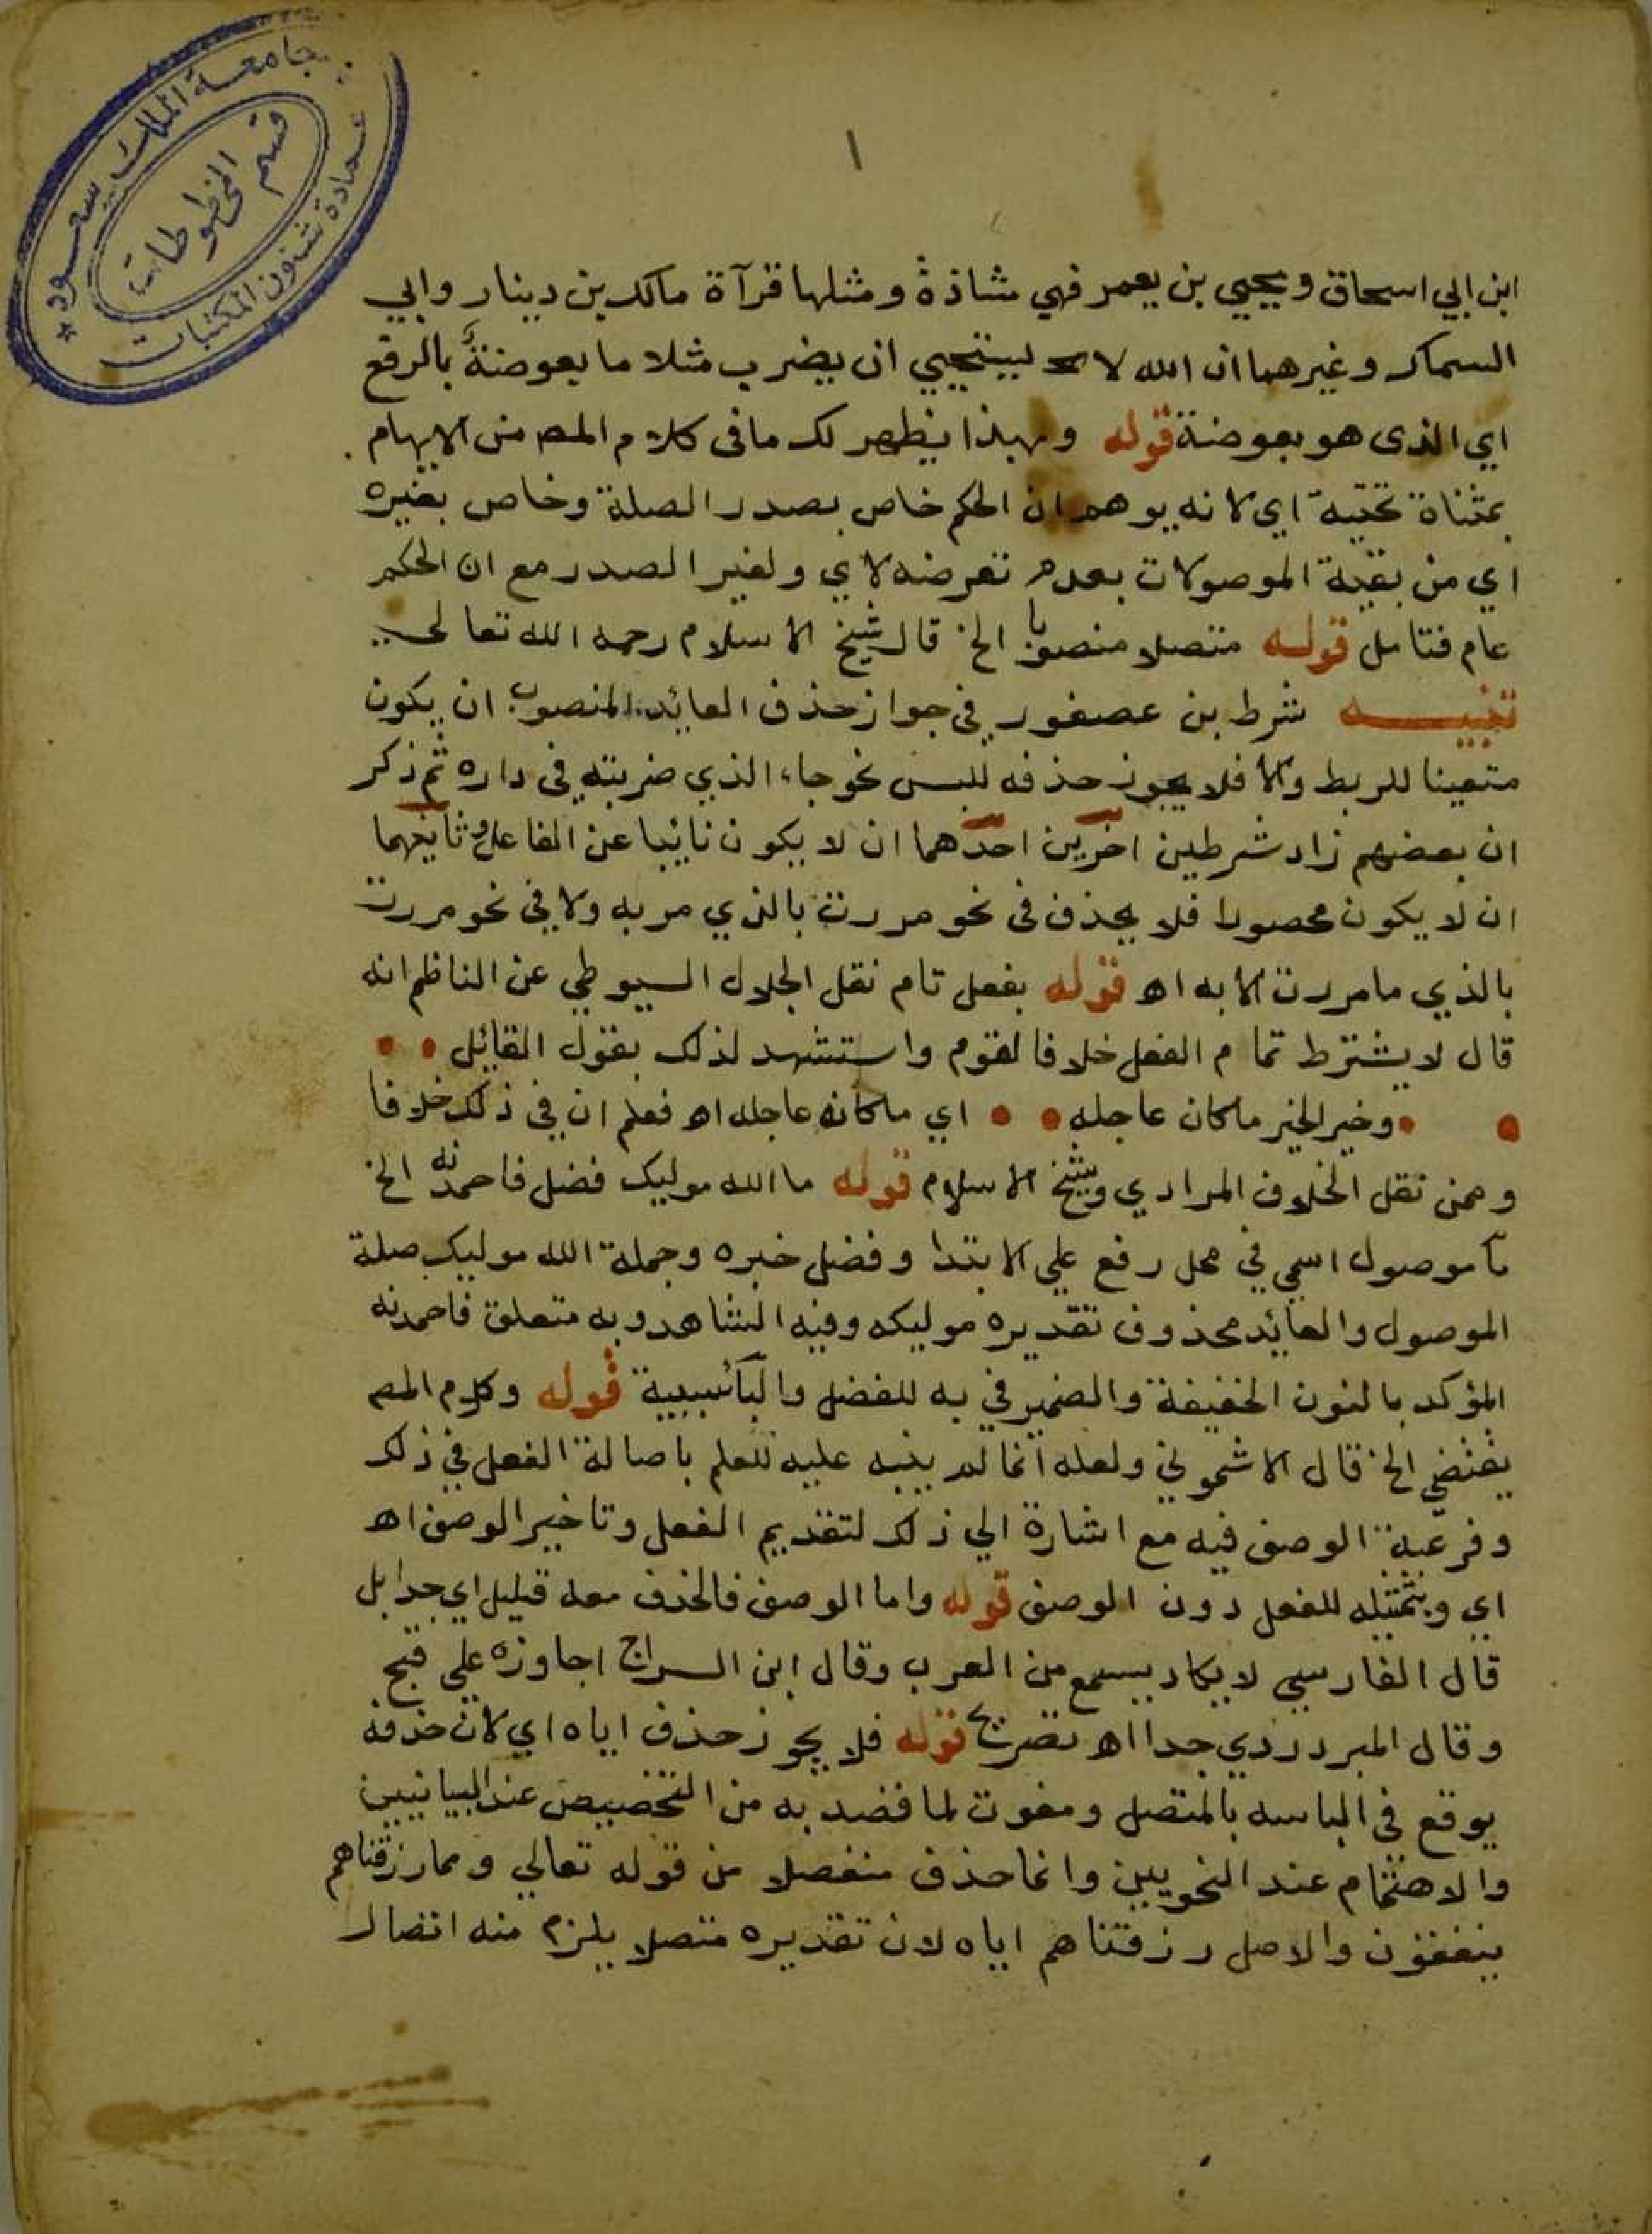 جامعة الملك سعود
قسم المخطوطات
عمادة شئون المكتبات
١
ابن ابي اسحاق ويحيي بن يعمر فهي شاذة ومثلها قرآة مالك بن دينار وابي
السماك وغيرهما ان الله لا يستحيي ان يضرب مثلا ما بعوضة بالرفع
اي الذى هو بعوضة قوله وبهذا يظهر لك ما فى كلام المص من الايهام
بمثناة تحتية اي لانه يوهم ان الحكم خاص بصدر الصلة وخاص بغيره
اي من بقية الموصولات بعدم تعرضه لاي ولغير الصدر مع ان الحكم
عام فتامل قوله متصلا منصوبا الخ قال شيخ الاسلام رحمه الله تعالى
تنبيه شرط بن عصفور في جواز حذف العائد المنصوب ان يكون
متعينا للربط والا فلا يجوز حذفه للبس نحو جاء الذي ضربته في داره ثم ذكر
ان بعضهم زاد شرطين اخرين احدهما ان لا يكون نائبا عن الفاعل وثانيهما
ان لا يكون محصورا فلا يحذف فى نحو مررت بالذي مر به ولا في نحو مررت
بالذي ما مررت الا به اه قوله بفعل تام نقل الجلال السيوطي عن الناظم انه
قال لا يشترط تمام الفعل خلافا لقوم واستشهد لذلك بقول القائل
وخير الخير ما كان عاجله اي ما كانه عاجله اه فعلم ان في ذلك خلافا
وممن نقل الخلاف المرادي وشيخ الاسلام قوله ما الله موليك فضل فاحمدنه الخ
ما موصول اسمي في محل رفع علي الابتدا وفضل خبره وجملة الله موليك صلة
الموصول والعائد محذوف تقديره موليكه وفيه الشاهد وبه متعلق فاحمدنه
المؤكد بالنون الخفيفة والضمير في به للفضل والبآ سببية قوله وكلام المص
يقتضي الخ قال الاشموني ولعله انما لم ينبه عليه للعلم باصالة الفعل في ذلك
وفرعية الوصف فيه مع اشارة الي ذلك لتقديم الفعل وتاخير الوصف اه
اي وبتمثيله للفعل دون الوصف قوله واما الوصف فالحذف معه قليل اي جدا بل
قال الفارسي لا يكاد يسمع من العرب وقال ابن السراج اجاوزه علي قبح
وقال المبرد ردي جدا اه تصريح قوله فلا يجوز حذف اياه اي لان حذفه
يوقع في الباسه بالمتصل ومفوت لما قصد به من التخصيص عند البيانيين
والاهتمام عند النحويين وانما حذف منفصلا من قوله تعالي ومما رزقناهم
ينفقون والاصل رزقناهم اياه لان تقديره متصلا يلزم منه اتصال